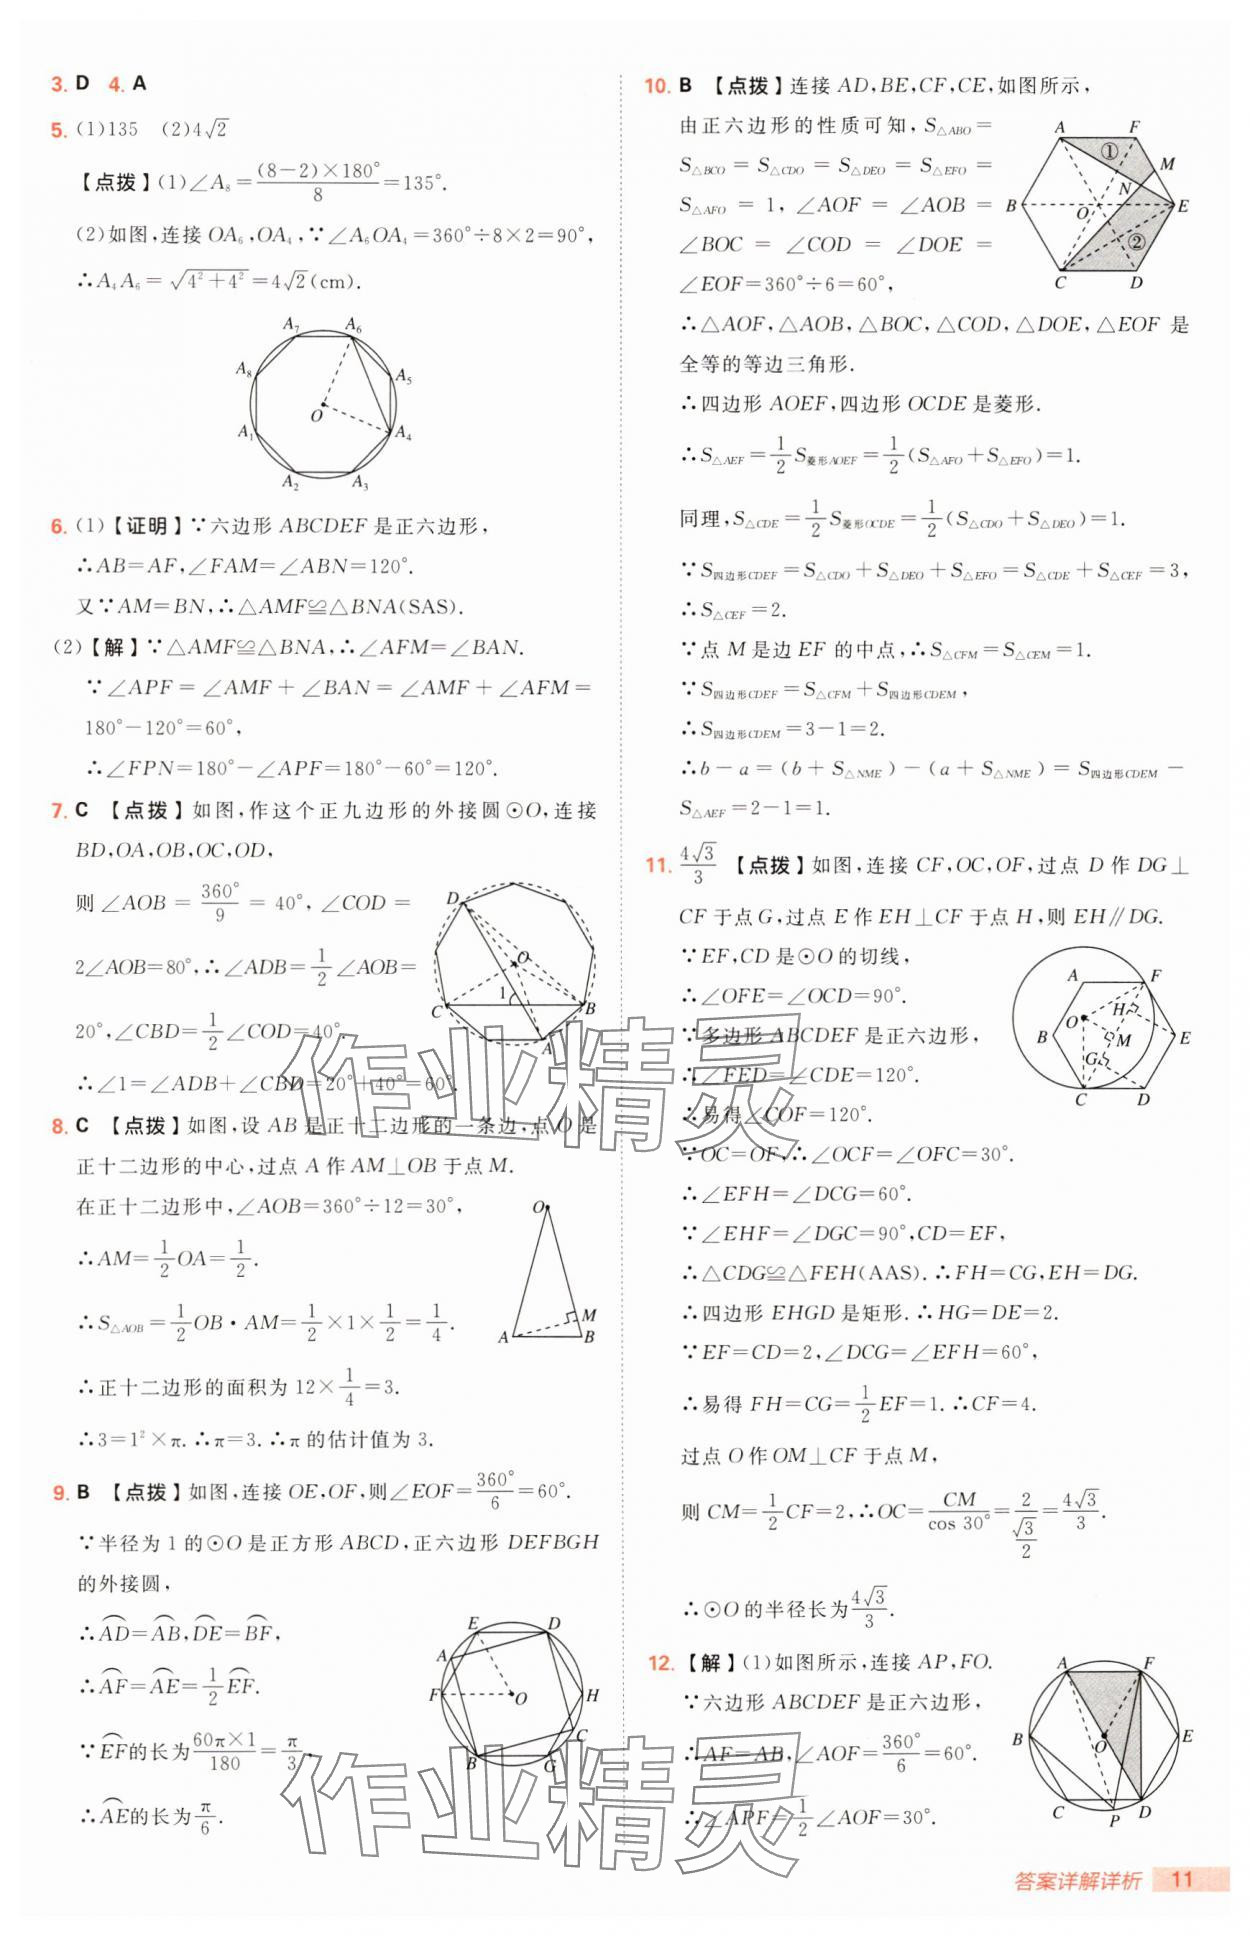 3. D 4. A
5. (1)135 (2)4√2
【点拨】(1)∠A₈=(8-2)×180°/8=135°.
(2)如图,连接OA₆,OA₄,∵∠A₆OA₄=360°÷8×2=90°,
∴A₄A₆=√(4²+4²)=4√2(cm).
A₇ A₆
A₈ A₅
O
A₁ A₄
A₂ A₃
6. (1)【证明】∵六边形ABCDEF是正六边形,
∴AB=AF,∠FAM=∠ABN=120°.
又∵AM=BN,∴△AMF≌△BNA(SAS).
(2)【解】∵△AMF≌△BNA,∴∠AFM=∠BAN.
∵∠APF=∠AMF+∠BAN=∠AMF+∠AFM=
180°-120°=60°,
∴∠FPN=180°-∠APF=180°-60°=120°.
7. C 【点拨】如图,作这个正九边形的外接圆⊙O,连接
BD,OA,OB,OC,OD,
则∠AOB=360°/9=40°,∠COD=
2∠AOB=80°,∴∠ADB=1/2∠AOB=
20°,∠CBD=1/2∠COD=40°.
∴∠1=∠ADB+∠CBD=20°+40°=60°.
D
O
C 1 B
A
8. C 【点拨】如图,设AB是正十二边形的一条边,点O是
正十二边形的中心,过点A作AM⊥OB于点M.
在正十二边形中,∠AOB=360°÷12=30°,
∴AM=1/2OA=1/2.
∴S△AOB=1/2OB·AM=1/2×1×1/2=1/4.
∴正十二边形的面积为12×1/4=3.
∴3=1²×π.∴π=3.∴π的估计值为3.
O
M
A B
9. B 【点拨】如图,连接OE,OF,则∠EOF=360°/6=60°.
∵半径为1的⊙O是正方形ABCD,正六边形DEFBGH
的外接圆,
∴⌒AD=⌒AB,⌒DE=⌒BF,
∴⌒AF=⌒AE=1/2⌒EF.
∵⌒EF的长为60π×1/180=π/3,
∴⌒AE的长为π/6.
E D
A
F O H
C
B G
10. B 【点拨】连接AD,BE,CF,CE,如图所示,
由正六边形的性质可知,S△ABO=
S△BCO=S△CDO=S△DEO=S△EFO=
S△AFO=1,∠AOF=∠AOB=
∠BOC=∠COD=∠DOE=
∠EOF=360°÷6=60°,
A F
① M
N
B O E
②
C D
∴△AOF,△AOB,△BOC,△COD,△DOE,△EOF是
全等的等边三角形.
∴四边形AOEF,四边形OCDE是菱形.
∴S△AEF=1/2S菱形AOEF=1/2(S△AFO+S△EFO)=1.
同理,S△CDE=1/2S菱形OCDE=1/2(S△CDO+S△DEO)=1.
∵S四边形CDEF=S△CDO+S△DEO+S△EFO=S△CDE+S△CEF=3,
∴S△CEF=2.
∵点M是边EF的中点,∴S△CFM=S△CEM=1.
∵S四边形CDEF=S△CFM+S四边形CDEM,
∴S四边形CDEM=3-1=2.
∴b-a=(b+S△NME)-(a+S△NME)=S四边形CDEM-
S△AEF=2-1=1.
11. 4√3/3 【点拨】如图,连接CF,OC,OF,过点D作DG⊥
CF于点G,过点E作EH⊥CF于点H,则EH∥DG.
∵EF,CD是⊙O的切线,
∴∠OFE=∠OCD=90°.
∵多边形ABCDEF是正六边形,
∴∠FED=∠CDE=120°.
∴易得∠COF=120°.
∵OC=OF,∴∠OCF=∠OFC=30°.
∴∠EFH=∠DCG=60°.
∵∠EHF=∠DGC=90°,CD=EF,
∴△CDG≌△FEH(AAS).∴FH=CG,EH=DG.
∴四边形EHGD是矩形.∴HG=DE=2.
∵EF=CD=2,∠DCG=∠EFH=60°,
∴易得FH=CG=1/2EF=1.∴CF=4.
过点O作OM⊥CF于点M,
则CM=1/2CF=2,∴OC=CM/cos 30°=2/(√3/2)=4√3/3.
∴⊙O的半径长为4√3/3.
A F
H
O
B M E
G
C D
12. 【解】(1)如图所示,连接AP,FO.
∵六边形ABCDEF是正六边形,
∴AF=AB,∠AOF=360°/6=60°.
∴∠APF=1/2∠AOF=30°.
A F
B O E
C P D
作业精灵
作业精灵
答案详解详析 11